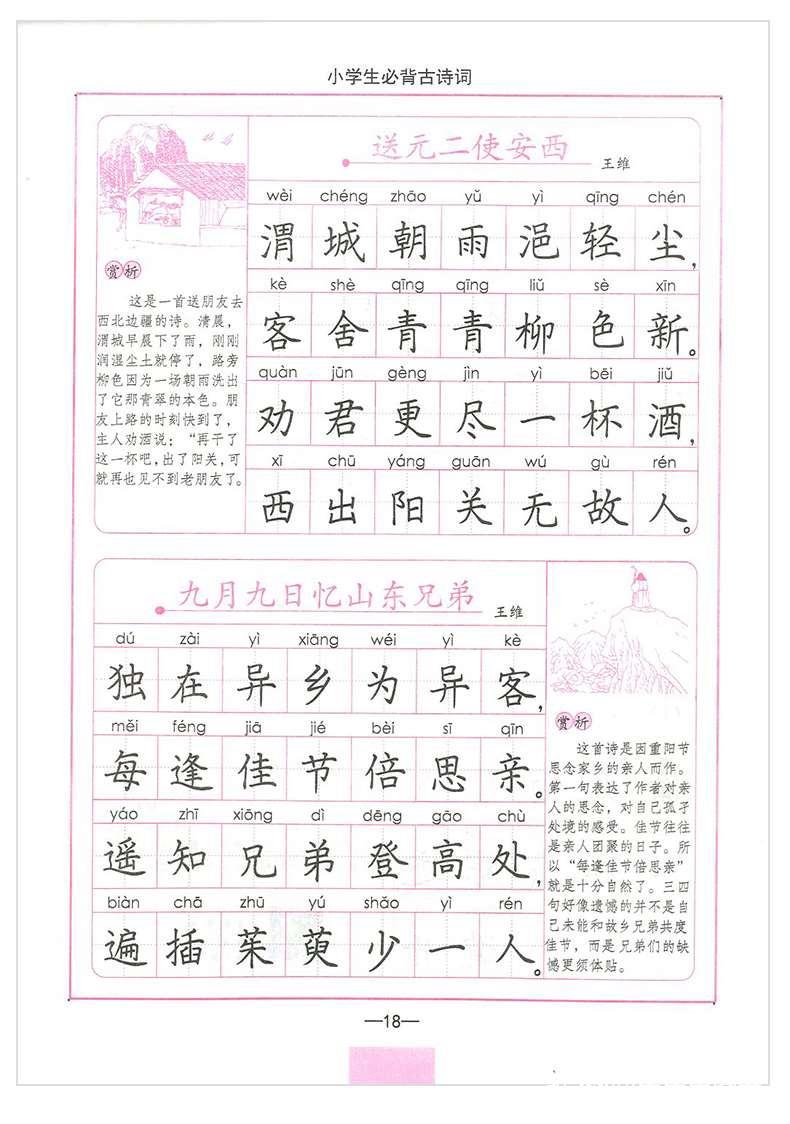 小学生必背古诗词
送元二使安西
王维
wèi chéng zhāo yǔ yì qīng chén
渭城朝雨浥轻尘，
kè shè qīng qīng liǔ sè xīn
客舍青青柳色新。
quàn jūn gèng jìn yì bēi jiǔ
劝君更尽一杯酒，
xī chū yáng guān wú gù rén
西出阳关无故人。
赏析
这是一首送朋友去
西北边疆的诗。清晨，
渭城早晨下了雨，刚刚
润湿尘土就停了，路旁
柳色因为一场朝雨洗出
了它那青翠的本色。朋
友上路的时刻快到了，
主人劝酒说：“再干了
这一杯吧，出了阳关，可
就再也见不到老朋友了。
九月九日忆山东兄弟
王维
dú zài yì xiāng wéi yì kè
独在异乡为异客，
měi féng jiā jié bèi sī qīn
每逢佳节倍思亲。
yáo zhī xiōng dì dēng gāo chù
遥知兄弟登高处，
biàn chā zhū yú shǎo yì rén
遍插茱萸少一人。
赏析
这首诗是因重阳节
思念家乡的亲人而作。
第一句表达了作者对亲
人的思念，对自己孤孑
处境的感受。佳节往往
是亲人团聚的日子。所
以“每逢佳节倍思亲”
就是十分自然了。三四
句好像遗憾的并不是自
己未能和故乡兄弟共度
佳节，而是兄弟们的缺
憾更须体贴。
—18—